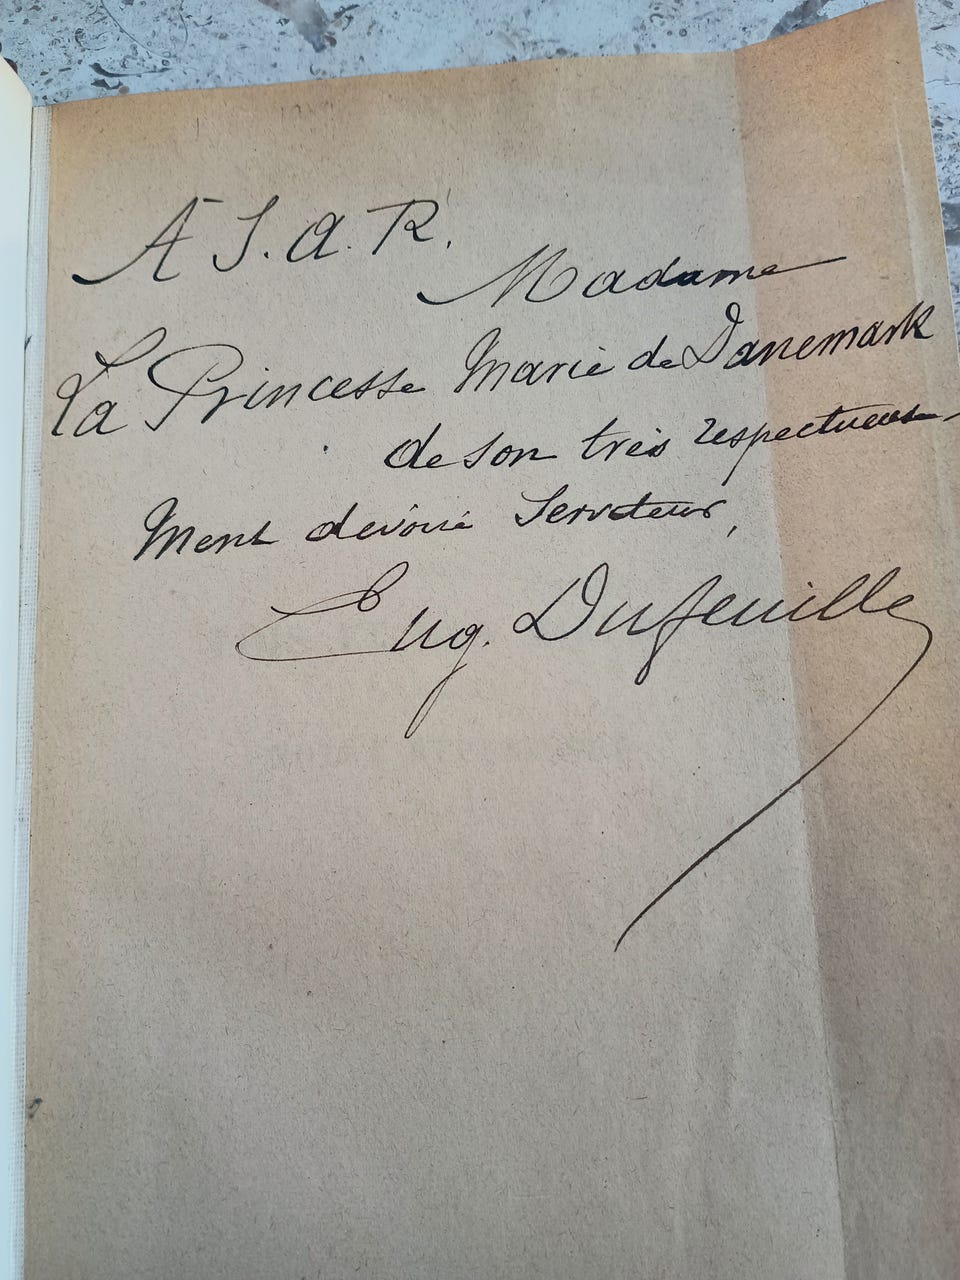 A S. A. R.
Madame
La Princesse Marie de Danemark
de son très respectueuse-
ment dévoué Serviteur,
Eug. Dufeuille